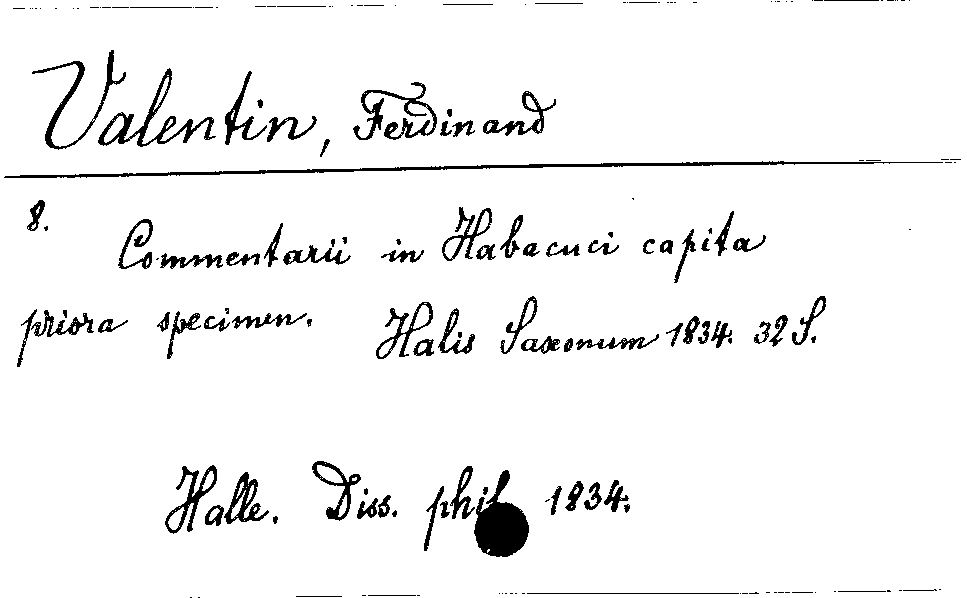 Valentin, Ferdinand
8.
Commentarii in Habacuci capita
priora specimen. Halis Saxonum 1834. 32 S.
Halle. Diss. phil 1834.